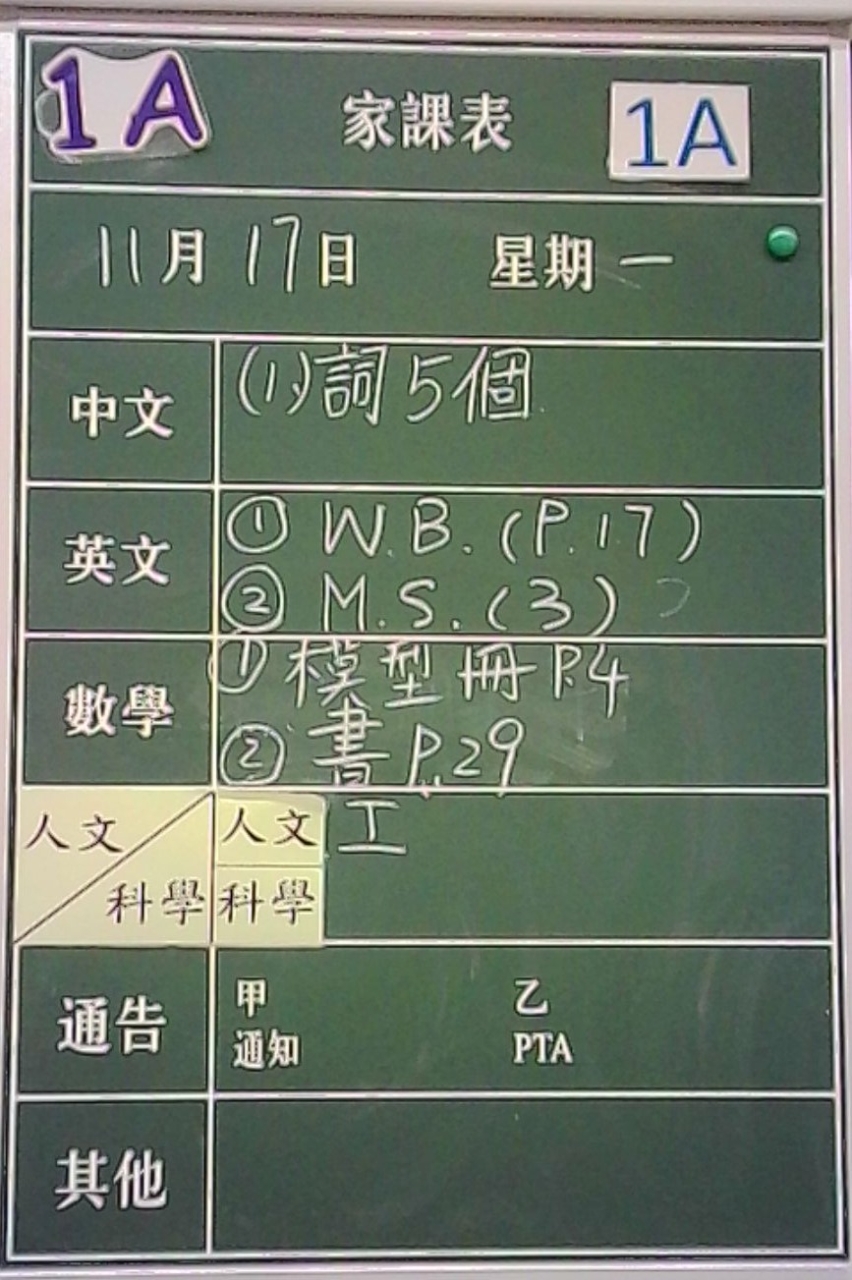 1A 家課表 1A
11月17日 星期一
中文 (1)詞5個
英文 ① W.B.(P.17)
② M.S.(3)
數學 ① 模型冊P.4
② 書P.29
人文 人文 工
科學 科學
通告 甲 乙
通知 PTA
其他